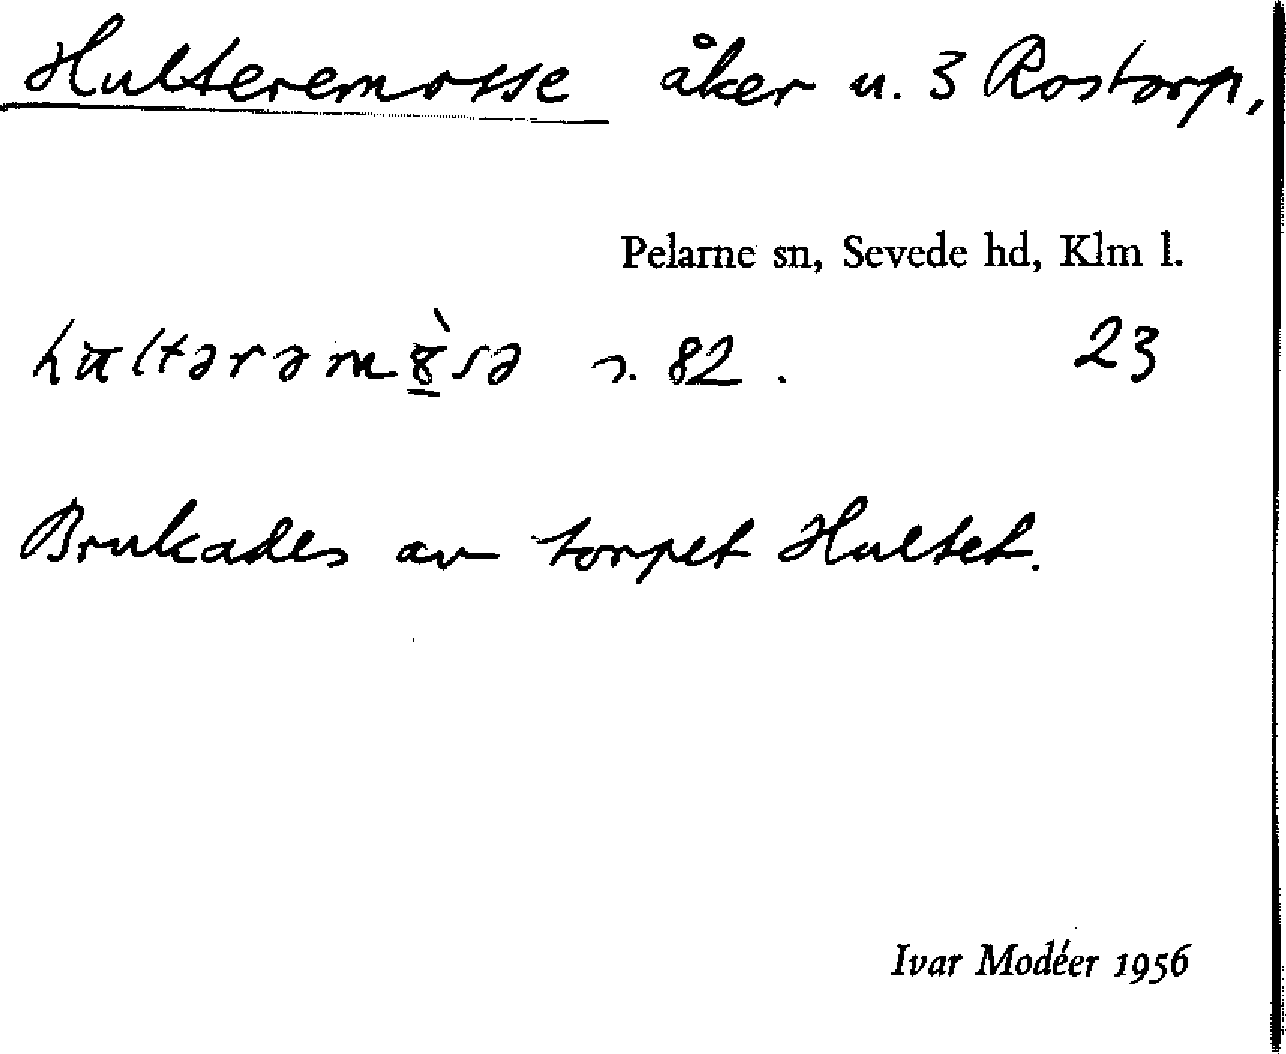 Hulteremosse åker u. 3 Rostorp,
Pelarne sn, Sevede hd, Klm l.
hultərəm8̠̀sə n. 82. 23
Brukades av torpet Hultet.
Ivar Modéer 1956